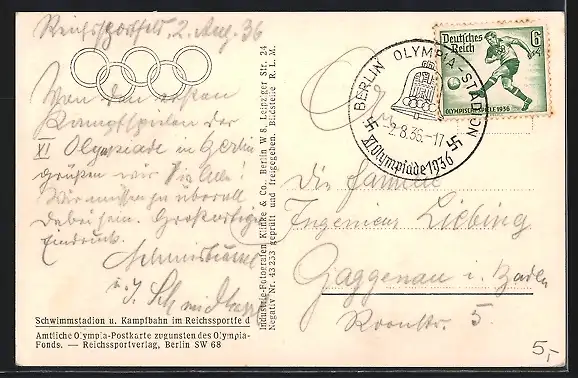 Reichssportfeld, 2. Aug. 36
Von den ersten
Kampfspielen der
XI Olympiade in Berlin
grüßen wir Sie Alle!
Wir müssen ja überall
dabei sein. Großartiger
Eindruck.
u.
Schwimmstadion u. Kampfbahn im Reichssportfeld
Amtliche Olympia-Postkarte zugunsten des Olympia-
Fonds. — Reichssportverlag, Berlin SW 68
Industrie-Fotografen Klinke & Co. Berlin W 8, Leipziger Str. 24
Negativ Nr. 43 253 geprüft und freigegeben. Bildstelle R. L. M.
BERLIN OLYMPIA-STADION
2.8.36.-17
XI. Olympiade 1936
Deutsches
Reich
6
+4
OLYMPISCHE SPIELE 1936
Die Familie
Ingenieur Liebing
Gaggenau i. Baden
Roonstr. 5.
5,-